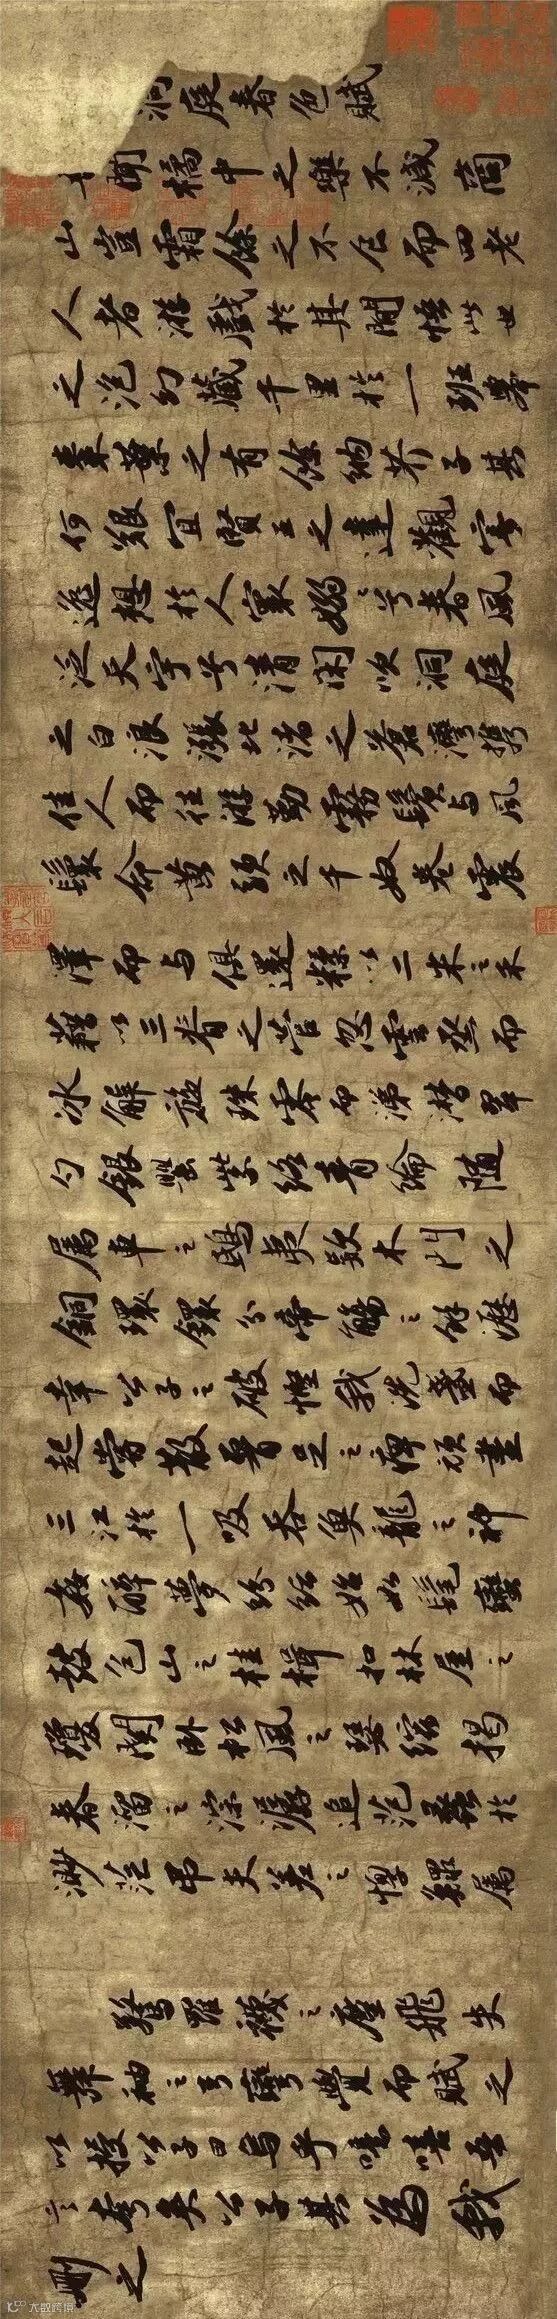 洞庭春色賦
聞橘中之樂不減商
山豈霜餘之不食而四老
人者游戲於其間悟此世
之泡幻藏千里於一班舉
棗葉之有餘納芥子其
何艱宜賢王之達觀寄
逸想於人寰嫋〻兮春風
泛天宇兮清閑吹洞庭
之白浪漲北渚之蒼灣攜
佳人而往游勤霧鬢与風
鬟命黃頭之千奴卷震
澤而与俱還糅以二米之禾
藉以三脊之菅忽雲烝而
冰解旋珠零而涕潸翠
勺銀罌紫絡青綸隨
屬車之鴟夷款木門之
銅環鐶分帝觴之餘瀝
幸公子之破慳我洗盞而
起嘗散腰足之痹頑盡
三江於一吸吞魚龍之神
姦醉夢紛紜始如髦蠻
鼓包山之桂楫扣林屋之
瓊關臥松風之瑟縮揭
春溜之淙潺追范蠡於
渺茫弔夫差之惸鰥屬
驚羅襪之塵飛失
舞袖之弓彎覺而賦之
以授公子曰烏乎噫嘻吾
言夸矣公子其為我
刪之
大数跨境